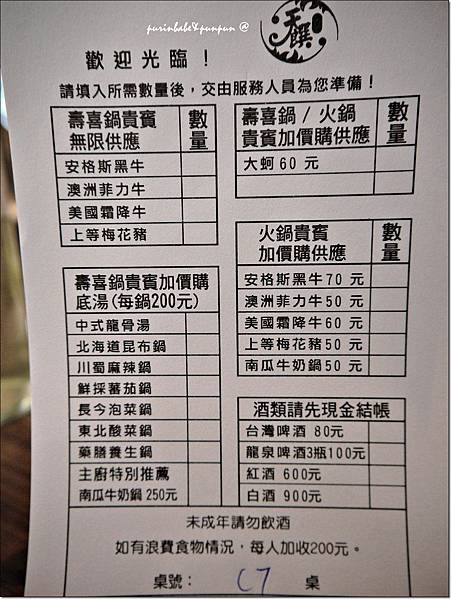 purinbabe&punpun @
天饌
歡迎光臨！
請填入所需數量後，交由服務人員為您準備！
壽喜鍋貴賓
無限供應
數量
安格斯黑牛
澳洲菲力牛
美國霜降牛
上等梅花豬
壽喜鍋貴賓加價購
底湯(每鍋200元)
中式龍骨湯
北海道昆布鍋
川蜀麻辣鍋
鮮採蕃茄鍋
長今泡菜鍋
東北酸菜鍋
藥膳養生鍋
主廚特別推薦
南瓜牛奶鍋250元
壽喜鍋 / 火鍋
貴賓加價購供應
數量
大蚵60 元
火鍋貴賓
加價購供應
數量
安格斯黑牛70 元
澳洲菲力牛50 元
美國霜降牛60 元
上等梅花豬50 元
南瓜牛奶鍋50 元
酒類請先現金結帳
台灣啤酒 80元
龍泉啤酒3瓶100元
紅酒 600元
白酒 900元
未成年請勿飲酒
如有浪費食物情況，每人加收200元。
桌號： C7 桌